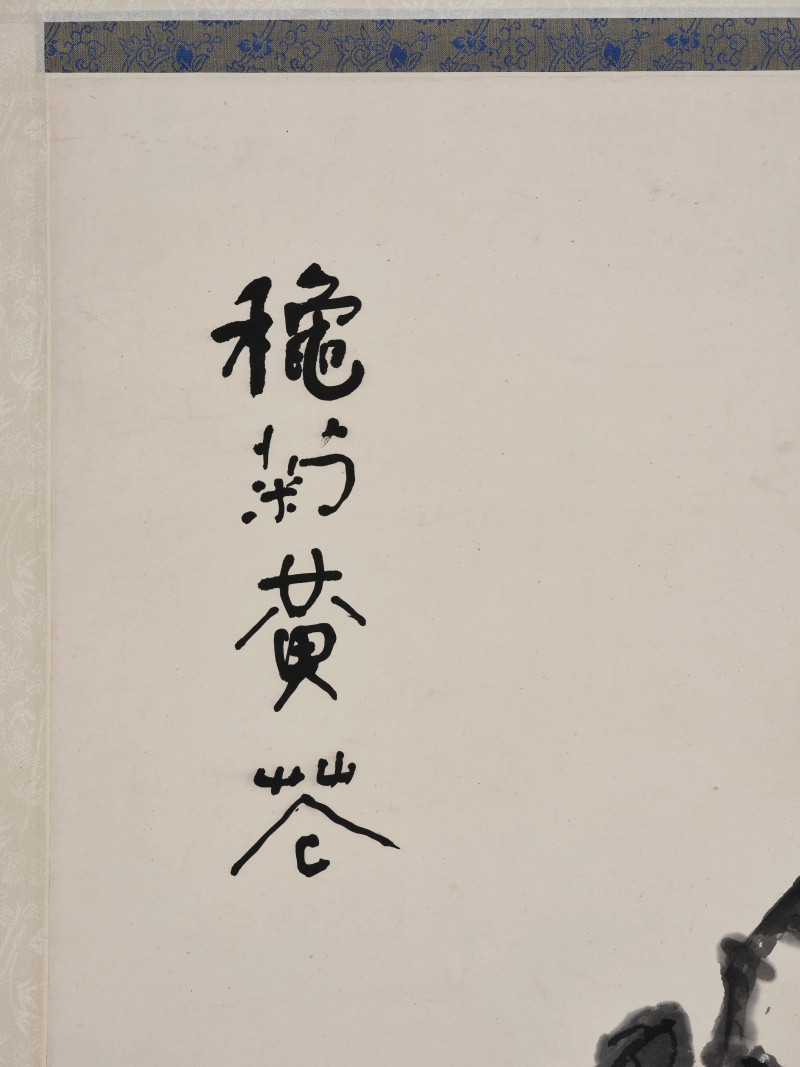 穐菊黄花